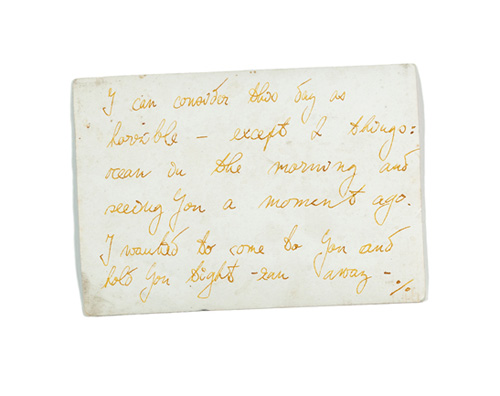 I can consider this day as
horrible - except 2 things:
ocean in the morning and
seeing you a moment ago.
I wanted to come to you and
hold you tight - run away -
./.